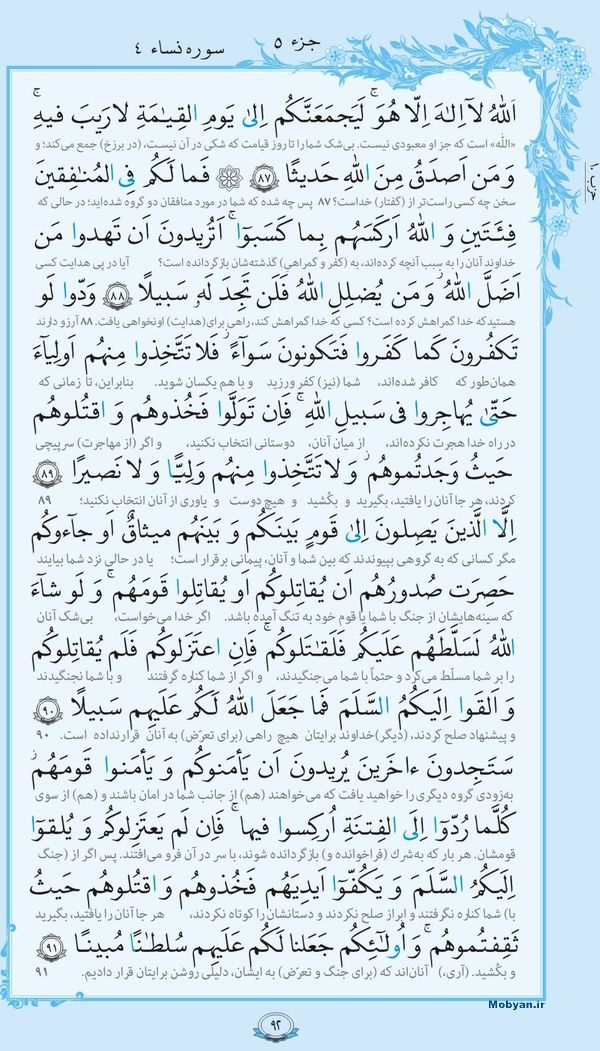 جزء ۵
سوره نساء ۴
حزب ۱۰
اَللهُ لآ اِلـٰهَ اِلّا هُوَ ۚ لَيَجمَعَنَّكُم اِلىٰ يَومِ القِيـٰمَةِ لا رَيبَ فيهِ ۗ
«الله» است که جز او معبودی نیست. بی‌شک شما را تا روز قیامت که شکی در آن نیست، (در برزخ) جمع می‌کند؛ و
وَ مَن اَصدَقُ مِنَ اللهِ حَديثًا ٨٧ فَما لَكُم فِى المُنـٰفِقينَ
سخن چه کسی راست‌تر از (گفتار) خداست؟ ۸۷ پس چه شده که شما در مورد منافقان دو گروه شده‌اید؛ در حالی که
فِئَتَينِ وَ اللهُ اَركَسَهُم بِما كَسَبوا ۚ اَتُريدونَ اَن تَهدوا مَن
خداوند آنان را به سبب آنچه کرده‌اند، به (کفر و گمراهی) گذشته‌شان بازگردانده است؟ آیا در پی هدایت کسی
اَضَلَّ اللهُ ۖ وَ مَن يُضلِلِ اللهُ فَلَن تَجِدَ لَهو سَبيلًا ٨٨ وَدّوا لَو
هستید که خدا گمراهش کرده است؟ کسی که خدا گمراهش کند، راهی برای (هدایت) او نخواهی یافت. ۸۸ آرزو دارند
تَكفُرونَ كَما كَفَروا فَتَكونونَ سَوآءً ۖ فَلا تَتَّخِذوا مِنهُم اَولِيآءَ
همان‌طور که کافر شده‌اند، شما (نیز) کفر ورزید و با هم یکسان شوید. بنابراین، تا زمانی که
حَتّىٰ يُهاجِروا فى سَبيلِ اللهِ ۚ فَاِن تَوَلَّوا فَخُذوهُم وَ اقتُلوهُم
در راه خدا هجرت نکرده‌اند، از میان آنان، دوستانی انتخاب نکنید، و اگر (از مهاجرت) سرپیچی
حَيثُ وَجَدتُموهُم ۖ وَ لا تَتَّخِذوا مِنهُم وَلِيًّا وَ لا نَصيرًا ٨٩
کردند، هر جا آنان را یافتید، بگیرید و بکُشید و هیچ دوست و یاوری از آنان انتخاب نکنید؛ ۸۹
اِلَّا الَّذينَ يَصِلونَ اِلىٰ قَومٍ بَينَكُم وَ بَينَهُم ميثاقٌ اَو جآءوكُم
مگر کسانی که به گروهی بپیوندند که بین شما و آنان، پیمانی برقرار است؛ یا در حالی نزد شما بیایند
حَصِرَت صُدورُهُم اَن يُقاتِلوكُم اَو يُقاتِلوا قَومَهُم ۚ وَ لَو شآءَ
که سینه‌هایشان از جنگ با شما یا قوم خود به تنگ آمده باشد. اگر خدا می‌خواست، بی‌شک آنان
اللهُ لَسَلَّطَهُم عَلَيكُم فَلَقـٰتَلوكُم ۚ فَاِنِ اعتَزَلوكُم فَلَم يُقاتِلوكُم
را بر شما مسلّط می‌کرد و حتماً با شما می‌جنگیدند، و اگر از شما کناره گرفتند و با شما نجنگیدند
وَ اَلقَوا اِلَيكُمُ السَّلَمَ فَما جَعَلَ اللهُ لَكُم عَلَيهِم سَبيلًا ٩٠
و پیشنهاد صلح کردند، (دیگر) خداوند برایتان هیچ راهی (برای تعرّض) به آنان قرار نداده است. ۹۰
سَتَجِدونَ ءاخَرينَ يُريدونَ اَن يَأمَنوكُم وَ يَأمَنوا قَومَهُم ۖ
به‌زودی گروه دیگری را خواهید یافت که می‌خواهند (هم) از جانب شما در امان باشند و (هم) از سوی
كُلَّما رُدّوٓا اِلَى الفِتنَةِ اُركِسوا فيها ۚ فَاِن لَم يَعتَزِلوكُم وَ يُلقوٓا
قومشان. هر بار که به‌شرک (فراخوانده و) بازگردانده شوند، با سر در آن فرو می‌افتند. پس اگر از (جنگ
اِلَيكُمُ السَّلَمَ وَ يَكُفّوٓا اَيدِيَهُم فَخُذوهُم وَ اقتُلوهُم حَيثُ
با) شما کناره نگرفتند و ابراز صلح نکردند و دستانشان را کوتاه نکردند، هر جا آنان را یافتید، بگیرید
ثَقِفتُموهُم ۚ وَ اُولـٰٓئِكُم جَعَلنا لَكُم عَلَيهِم سُلطـٰنًا مُبينًا ٩١
و بکُشید. (آری،) آنان‌اند که (برای جنگ و تعرّض) به ایشان، دلیلی روشن برایتان قرار دادیم. ۹۱
۹۲
Mobyan.ir